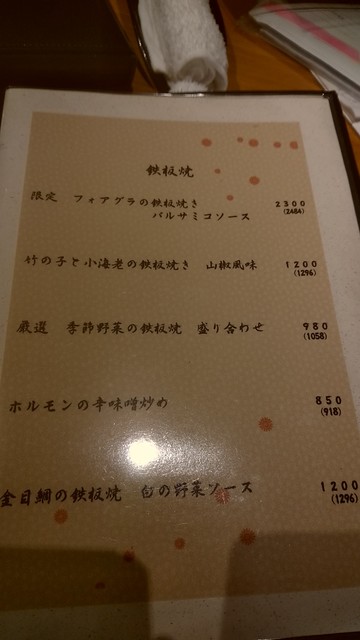 鉄板焼
限定 フォアグラの鉄板焼き 2300
バルサミコソース (2484)
竹の子と小海老の鉄板焼き 山椒風味 1200
(1296)
厳選 季節野菜の鉄板焼 盛り合わせ 980
(1058)
ホルモンの辛味噌炒め 850
(918)
金目鯛の鉄板焼 旬の野菜ソース 1200
(1296)